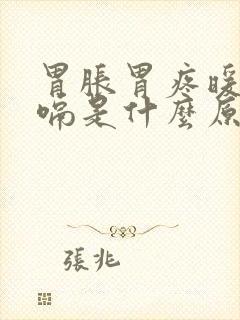 胃脹胃疼暖
嗝是什麼原
張兆